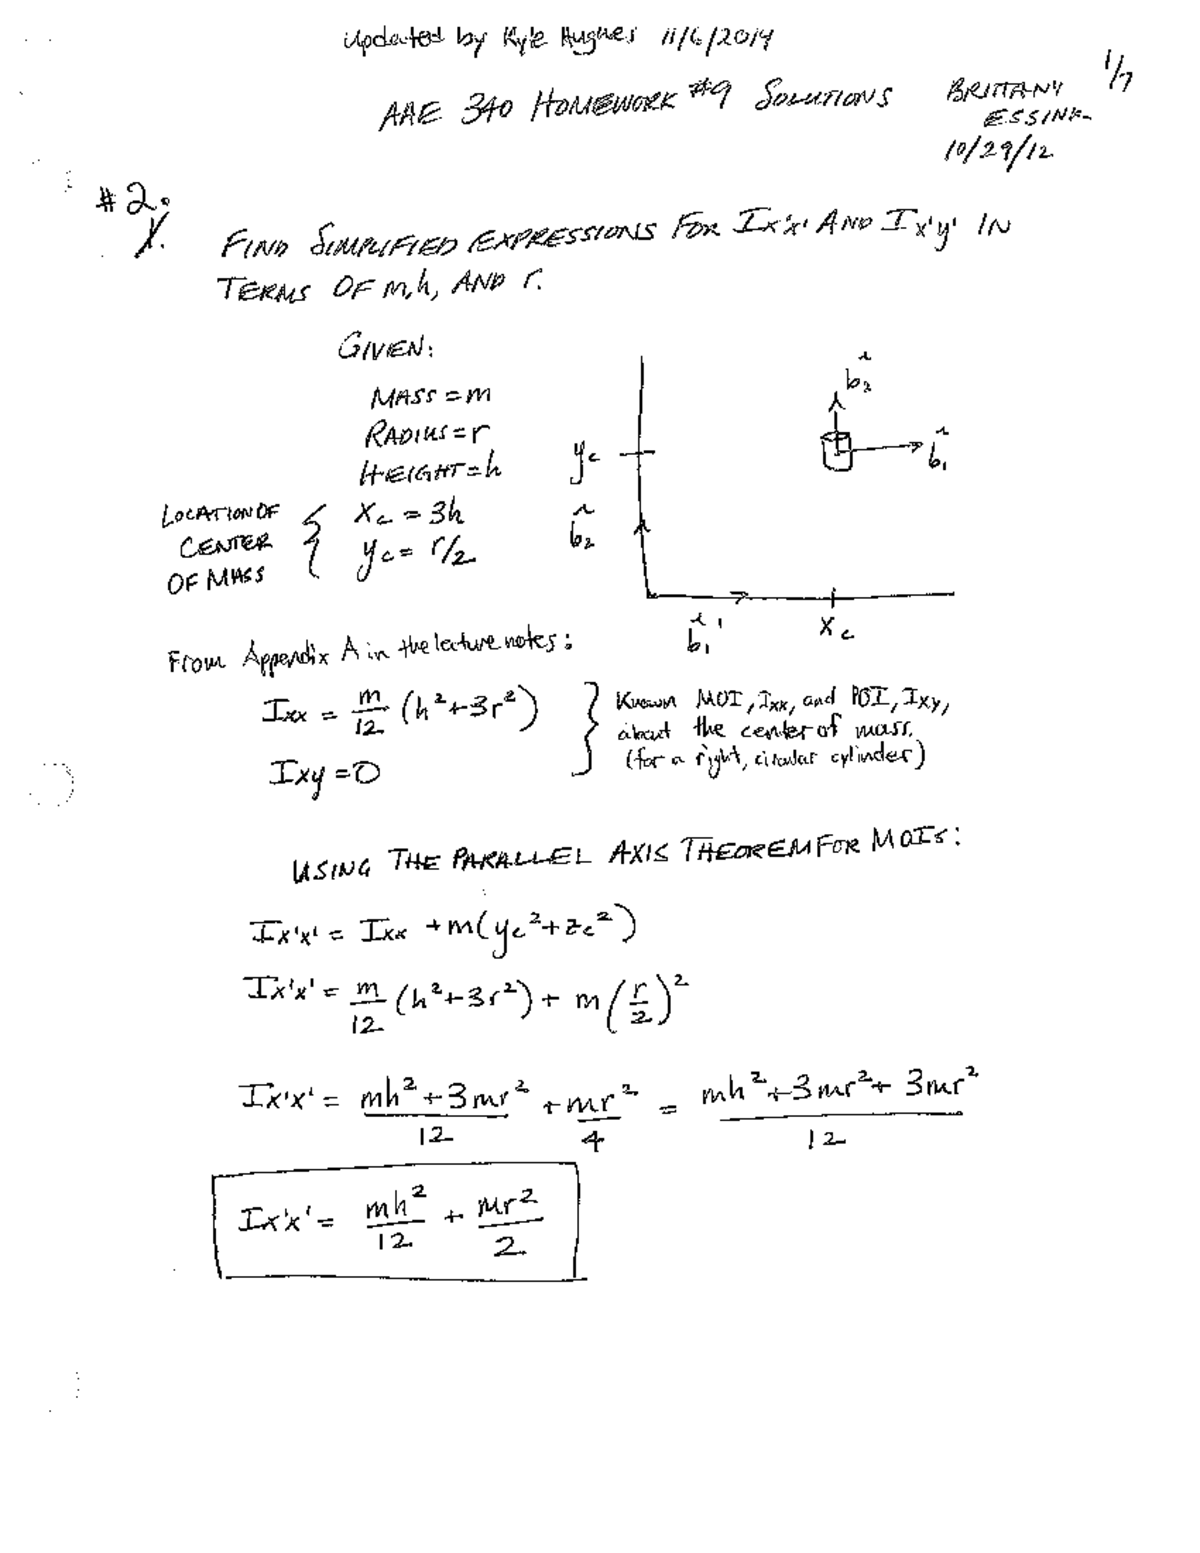 Updated by Kyle Hughes 11/6/2014
1/7
AAE 340 HOMEWORK #9 SOLUTIONS
BRITTANY
ESSINK
10/29/12
#2.
1.
FIND SIMPLIFIED EXPRESSIONS FOR Ix'x' AND Ix'y' IN
TERMS OF m,h, AND r.
GIVEN:
MASS = m
RADIUS = r
HEIGHT = h
LOCATION OF
CENTER
OF MASS
xc = 3h
yc = r/2
b̂2
b̂1
yc
b̂2
b̂1'
xc
From Appendix A in the lecture notes:
Ixx = m/12 (h²+3r²)
Ixy = 0
Known MOI, Ixx, and POI, Ixy,
about the center of mass.
(for a right, circular cylinder)
USING THE PARALLEL AXIS THEOREM FOR MOIs:
Ix'x' = Ixx + m(yc²+zc²)
Ix'x' = m/12 (h²+3r²) + m(r/2)²
Ix'x' = (mh²+3mr²)/12 + mr²/4 = (mh²+3mr²+3mr²)/12
Ix'x' = mh²/12 + mr²/2